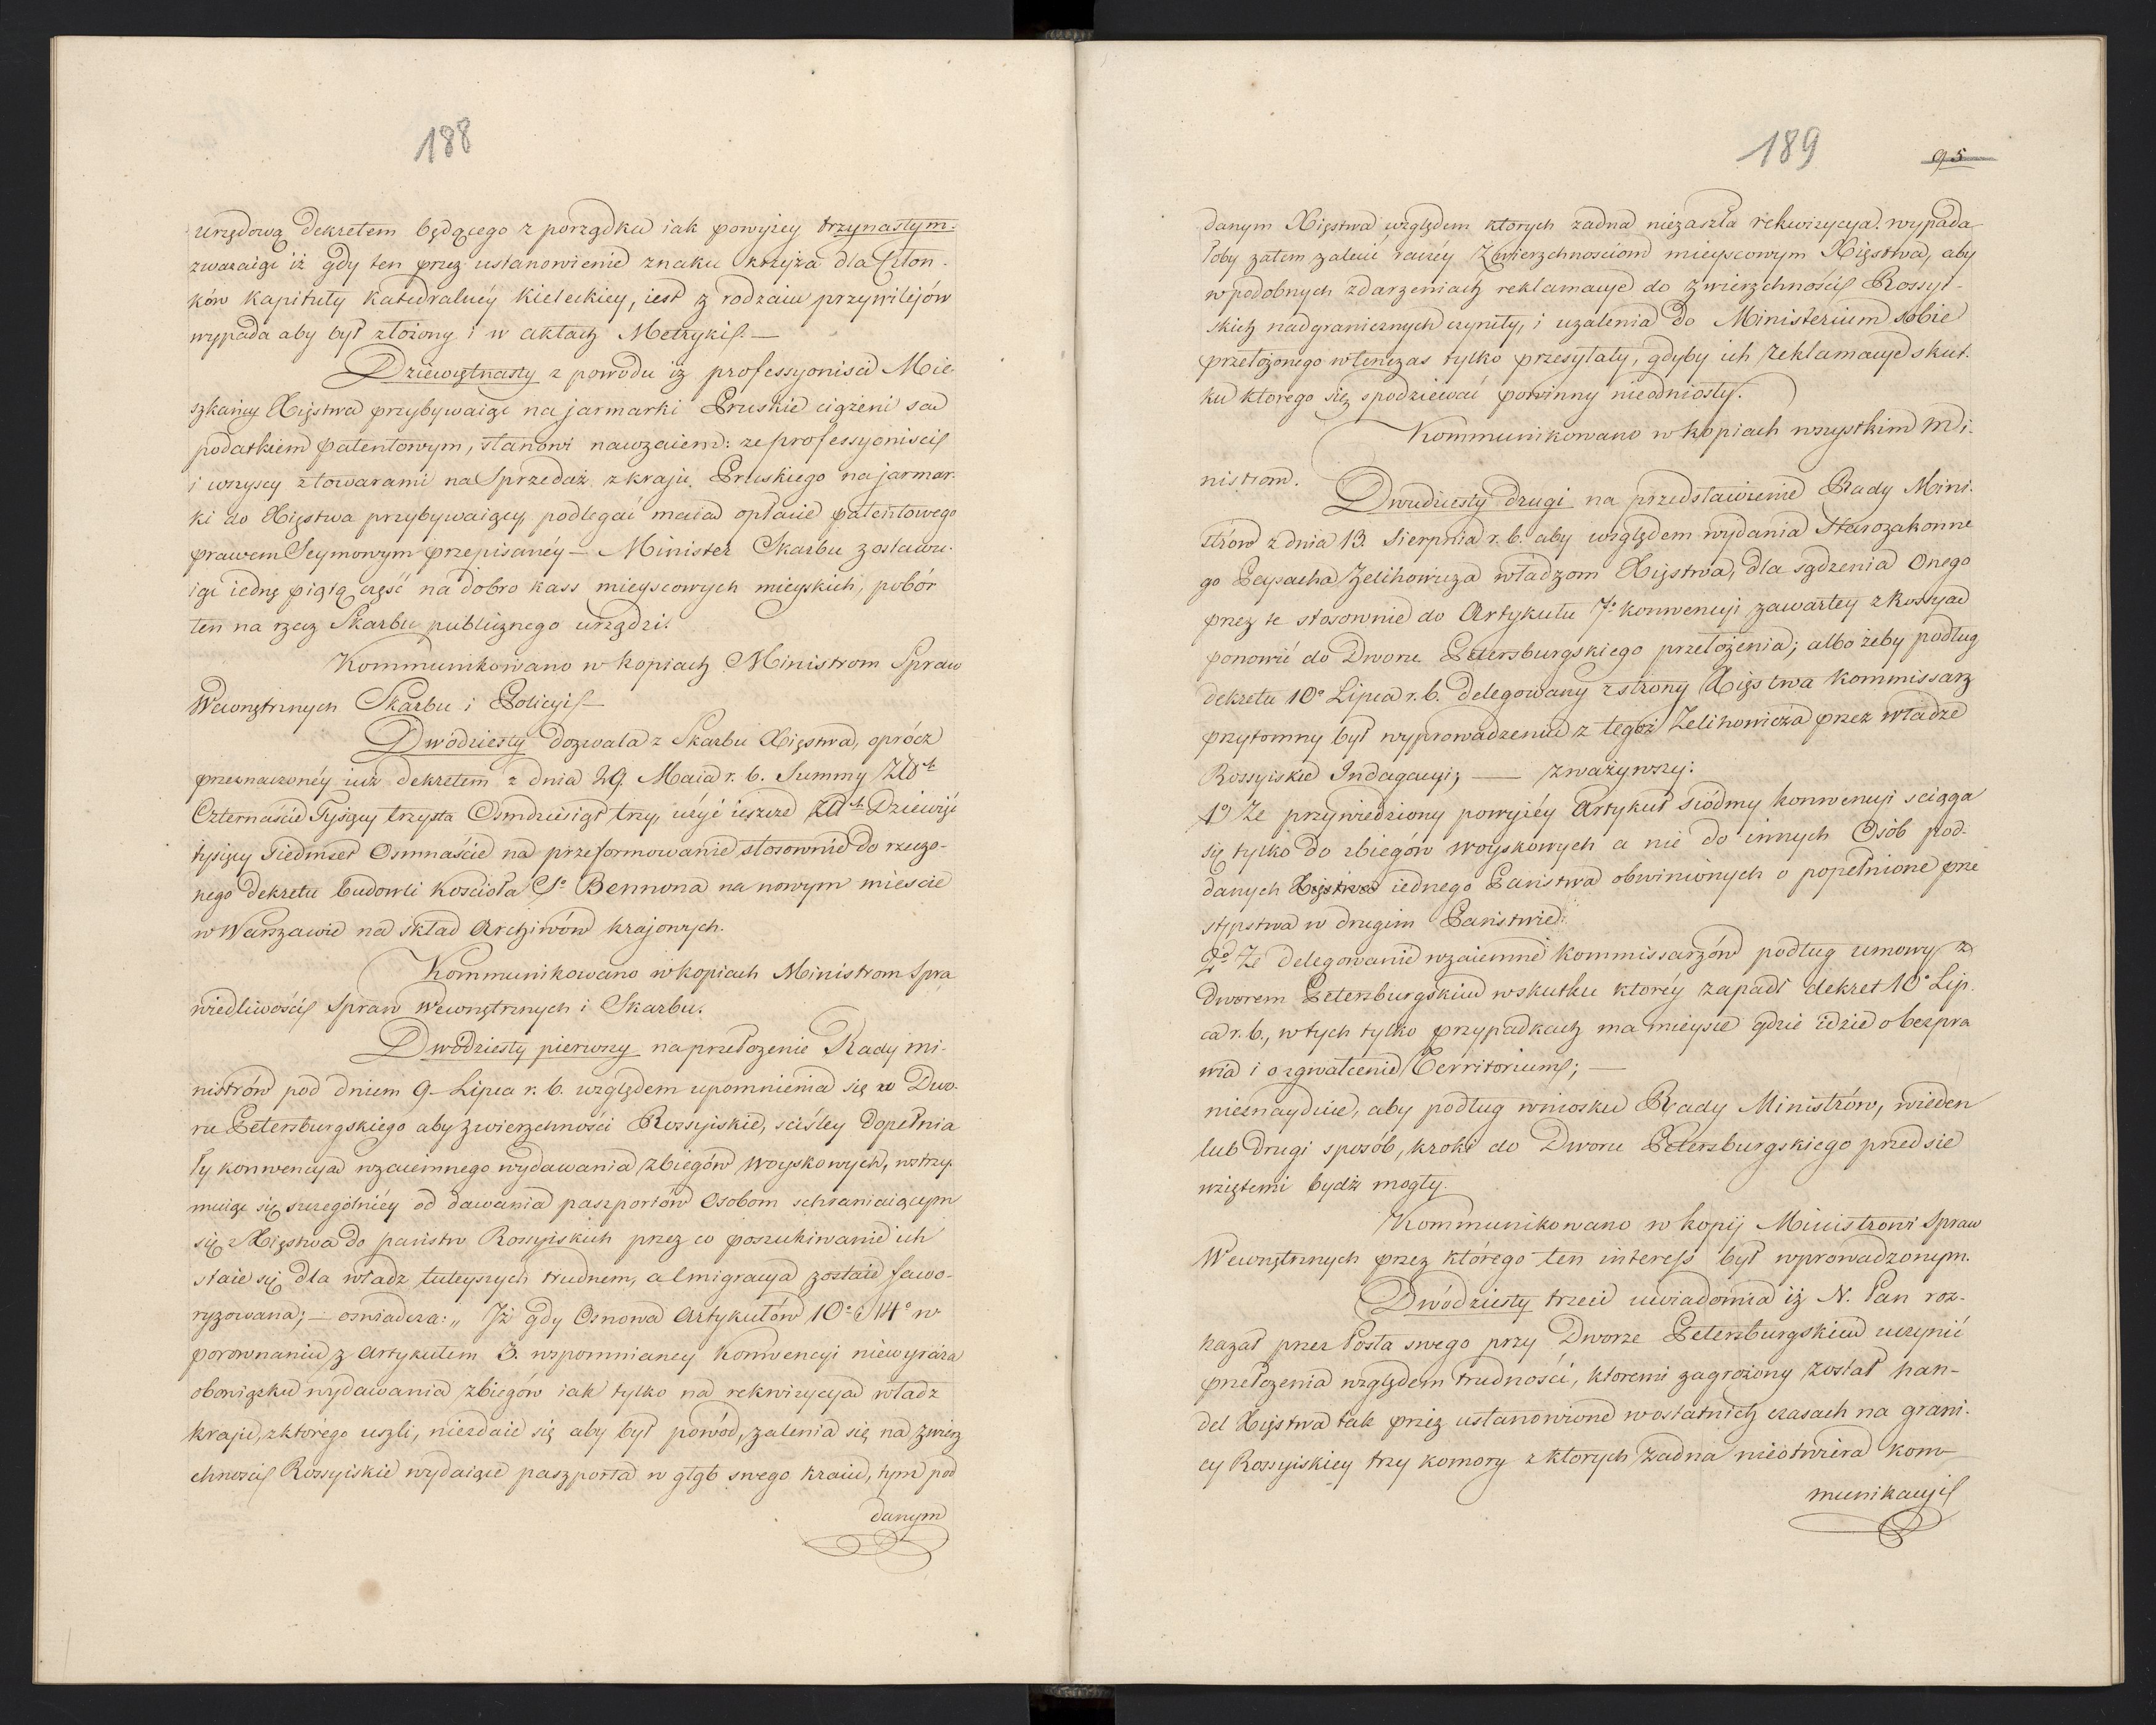 188
urzędową dekretem będącego z porządku iak powyżey trzynastym.
zważaiąc iż gdy ten przez ustanowienie znaku krzyża dla Człon-
ków Kapituły Katedralnéy Kieleckiey, iest z rodzaiu przywilejów
wypada aby był złożony i w aktach Metryki. —
Dziewiętnasty z powodu iż professyoniści Mie-
szkańcy Xięstwa przybywaiąc na jarmarki Pruskie ciążeni są
podatkiem patentowym, stanowi nawzaiem: że professyoniści
i wszyscy z towarami na Sprzedaż z kraju Pruskiego na jarmar-
ki do Xięstwa przybywaiący, podlegać maią opłacie patentowego
prawem Seymowym przepisanéy — Minister Skarbu zostawu-
iąc iednę piątą część na dobro kass mieyscowych mieyskich, pobór
ten na rzecz Skarbu publicznego urządzi.
Kommunikowano w kopiach Ministrom Spraw
Wewnętrznych Skarbu i Policyi —
Dwódziesty dozwala z Skarbu Xięstwa, oprócz
przeznaczonéy iuż dekretem z dnia 29. Maia r. b. Summy
Czternaście Tysięcy trzysta Osmdziesiąt trzy, użyć ieszcze Dziewięć
tysięcy Siedmset Osmnaście na przeformowanie stosownie do rzeczo-
nego dekretu budowli kościoła S. Bennona na nowym mieście
w Warszawie na skład Archiwów krajowych.
Kommunikowano w kopiach Ministrom Spra
wiedliwości Spraw Wewnętrznych i Skarbu.
Dwódziesty pierwszy na przełożenie Rady Mi-
nistrów pod dniem 9. Lipca r. b. względem upomnienia się u Dwo-
ru Petersburgskiego aby zwierzchności Rossyiskie, ściśley dopełnia
ły konwencyą wzaiemnego wydawania zbiegów woyskowych, wstrzy-
muiąc się szczególniéy od dawania paszportów Osobom schraniaiącym
się z Xięstwa do państw Rossyiskich przez co poszukiwanie ich
staie się dla władz tuteyszych trudnem, a Emigracya zostaie fawo-
ryzowana; — oświadcza: „ Iż gdy Osnowa Artykułów 10° i 14° w
porownaniu z Artykułem 3. wspomnianey Konwencyi niewyraża
obowiązku wydawania zbiegów iak tylko na rekwizycyą władz
kraju, z którego uszli, niezdaie się aby był powód, żalenia się na zwierz
chności Rossyiskie wydaiące paszporta w głąb swego kraiu, tym pod
danym
189
95
danym Xięstwa względem ktorych żadna niezaszła rekwizycya. wypada
łoby zatem zalecić raczéy Zwierzchnościom mieyscowym Xięstwa, aby
w podobnych zdarzeniach reklamacye do Zwierzchności Rossyi-
skich nadgranicznych czyniły, i użalenia do Ministerium sobie
przełożonego wtenczas tylko przesyłały, gdyby ich reklamacye skut-
ku którego się spodziewać powinny nieodniosły.
Kommunikowano w kopiach wszystkim Mi-
nistrom.
Dwudziesty drugi na przedstawienie Rady Mini-
strów z dnia 13. Sierpnia r. b. aby względem wydania Starozakonne
go Zelihowicza władzom Xięstwa, dla sądzenia Onego
przez te stosownie do Artykułu 7° konwencyi zawartey z Rossyą
ponowić do Dworu Petersburgskiego przełożenia; albo żeby podług
dekretu 10° Lipca r. b. delegowany z strony Xięstwa Kommissarz
przytomny był wyprowadzeniu z tegoż Zelihowicza przez władze
Rossyiskie Indagacyi; — zważywszy:
1° Że przywiedziony powyżéy Artykuł siódmy konwencyi sciąga
się tylko do zbiegów woyskowych a nie do innych Osób pod-
danych Xięstwa iednego Państwa obwinionych o popełnione prze
stępstwa w drugim Państwie.
2do Że delegowanie wzaiemne Kommissarzów podług umowy z
Dworem Petersburgskim w skutku któréy zapadł dekret 10° Lip-
ca r. b., w tych tylko przypadkach ma mieysce gdzie idzie o bezpra
wia i o zgwałcenie Territorium; —
nieznayduie, aby podług wniosku Rady Ministrów, wieden
lub drugi sposób, kroki do Dworu Petersburgskiego przedsie
wziętemi bydź mogły.
Kommunikowano w kopii Ministrowi Spraw
Wewnętrznych przez którego ten interess był wprowadzonym.
Dwódziesty trzeci uwiadomia iż N. Pan roz-
kazał przez Posła swego przy Dworze Petersburgskim uczynić
przełożenia względem trudności, ktoremi zagrożony został han-
del Xięstwa tak przez ustanowione w ostatnich czasach na grani-
cy Rossyiskiey trzy komory z ktorych żadna nieotwiera kom-
munikacyi